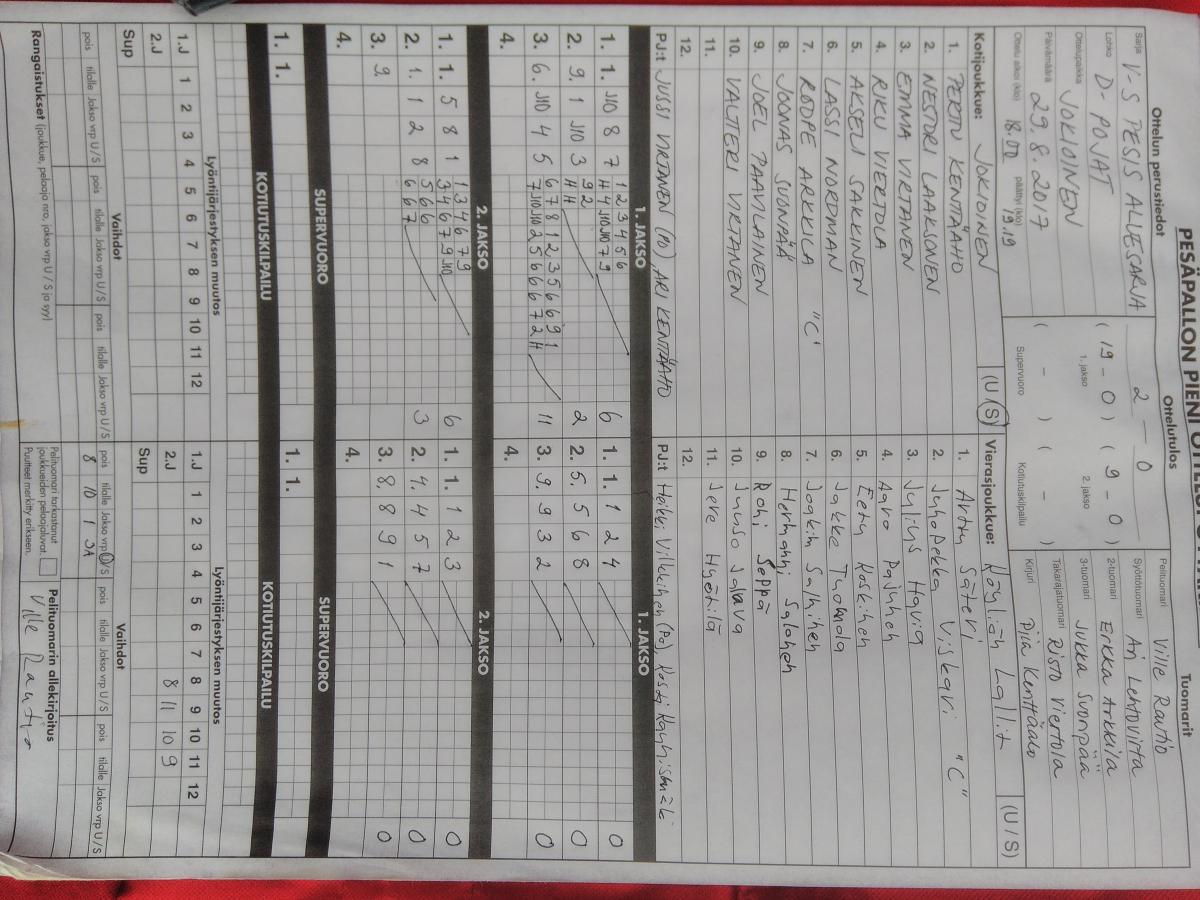 Ottelun perustiedot
Sarja V-S PESIS ALUESARJA
Lohko D-POJAT
Ottelupaikka JOKIOINEN
Päivämäärä 29.8.2017
Ottelu alkoi (klo) 18.00 päättyi (klo) 19.19
Ottelutulos
2 – 0
(19 – 0) (9 – 0)
1. jakso 2. jakso
( – ) ( – )
Supervuoro Kotiutuskilpailu
Tuomarit
Pelituomari Ville Rautio
Syöttötuomari Ari Lehtovirta
2-tuomari Erkka Arkkila
3-tuomari Jukka Suonpää
Takarajatuomari Risto Viertola
Kirjuri Piia Kenttäaho
Kotijoukkue: JOKIOINEN (U/S)
1. PERTTU KENTTÄAHO
2. NESTORI LAAKSONEN
3. EMMA VIRTANEN
4. RIKU VIERTOLA
5. AKSELI SAKKINEN
6. LASSI NORDMAN
7. ROOPE ARKKILA "C"
8. JOONAS SUONPÄÄ
9. JOEL PAAVILAINEN
10. VALTTERI VIRTANEN
11.
12.
PJ:t JUSSI VIRTANEN (PO), ARI KENTTÄAHO
Vierasjoukkue: Köyliön Lallit (U/S)
1. Arttu Säteri
2. Juhopekka Viskari "C"
3. Julius Havia
4. Aaro Pajunen
5. Eetu Koskinen
6. Jakke Tuomola
7. Joakim Salminen
8. Hermanni Salonen
9. Roni Seppä
10. Juuso Jalava
11. Jere Hyötilä
12.
PJ:t Heikki Villikinen (Po),
1. JAKSO
1. 1. J10 8 7 6
2. 9. 1 J10 3 2
3. 6. J10 4 5 11
4.
1. JAKSO
1. 1. 1 2 4 0
2. 5. 5 6 8 0
3. 9. 9 3 2 0
4.
2. JAKSO
1. 1. 5 8 1 1 3 4 6 7 9 6
3 4 6 7 9 J10
2. 1. 1 2 8 5 6 6 3
6 6 7
3. 9.
4.
2. JAKSO
1. 1. 1 2 3 0
2. 4. 4 5 7 0
3. 8. 8 9 1 0
4.
SUPERVUORO
1. 1.
SUPERVUORO
1. 1.
KOTIUTUSKILPAILU
KOTIUTUSKILPAILU
Lyöntijärjestyksen muutos
1.J 1 2 3 4 5 6 7 8 9 10 11 12
2.J
Sup
Lyöntijärjestyksen muutos
1.J 1 2 3 4 5 6 7 8 9 10 11 12
2.J 8 11 10 9
Sup
Vaihdot
pois tilalle Jakso vrp U/S pois tilalle Jakso vrp U/S pois tilalle Jakso vrp U/S pois tilalle Jakso vrp U/S
Vaihdot
pois tilalle Jakso vrp U/S pois tilalle Jakso vrp U/S pois tilalle Jakso vrp U/S pois tilalle Jakso vrp U/S
8 10 1 3A
Rangaistukset (joukkue, pelaaja nro, jakso vrp U / S ja syy)
Pelituomari tarkastanut
joukkueiden pelaajaluvat.
Puutteet merkitty erikseen.
Pelituomarin allekirjoitus
Ville Rautio